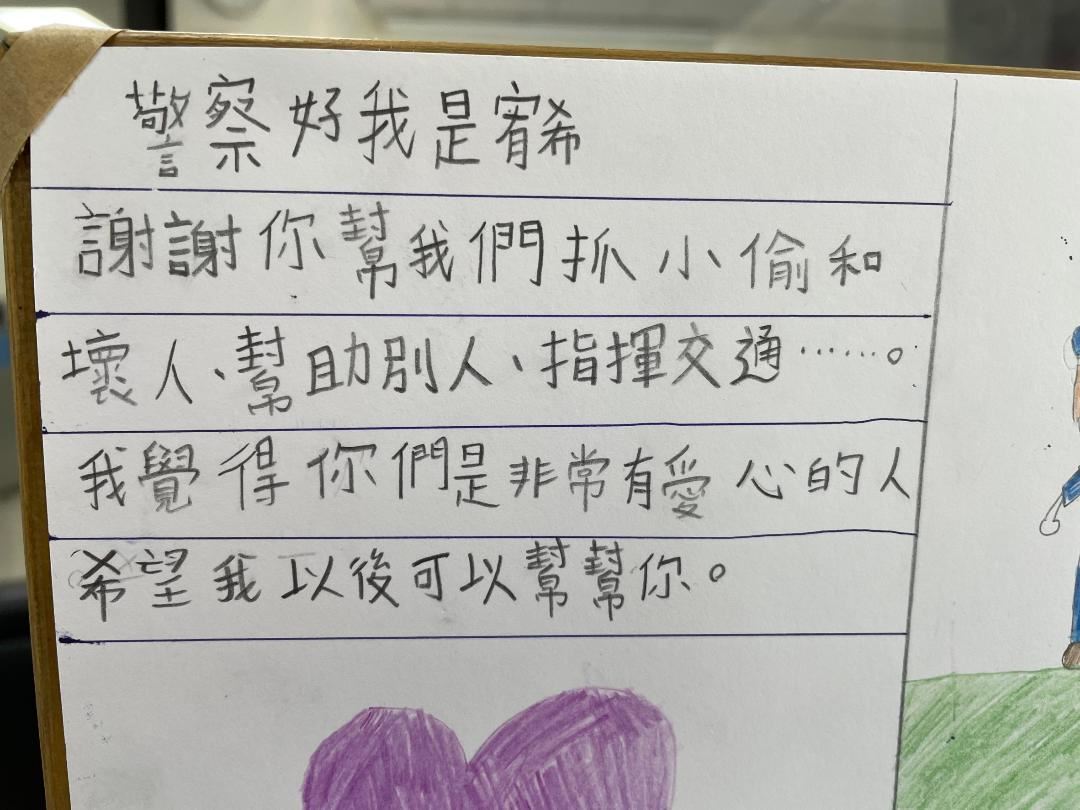 警察好我是宥希
謝謝你幫我們抓小偷和
壞人、幫助別人、指揮交通……。
我覺得你們是非常有愛心的人
希望我以後可以幫幫你。